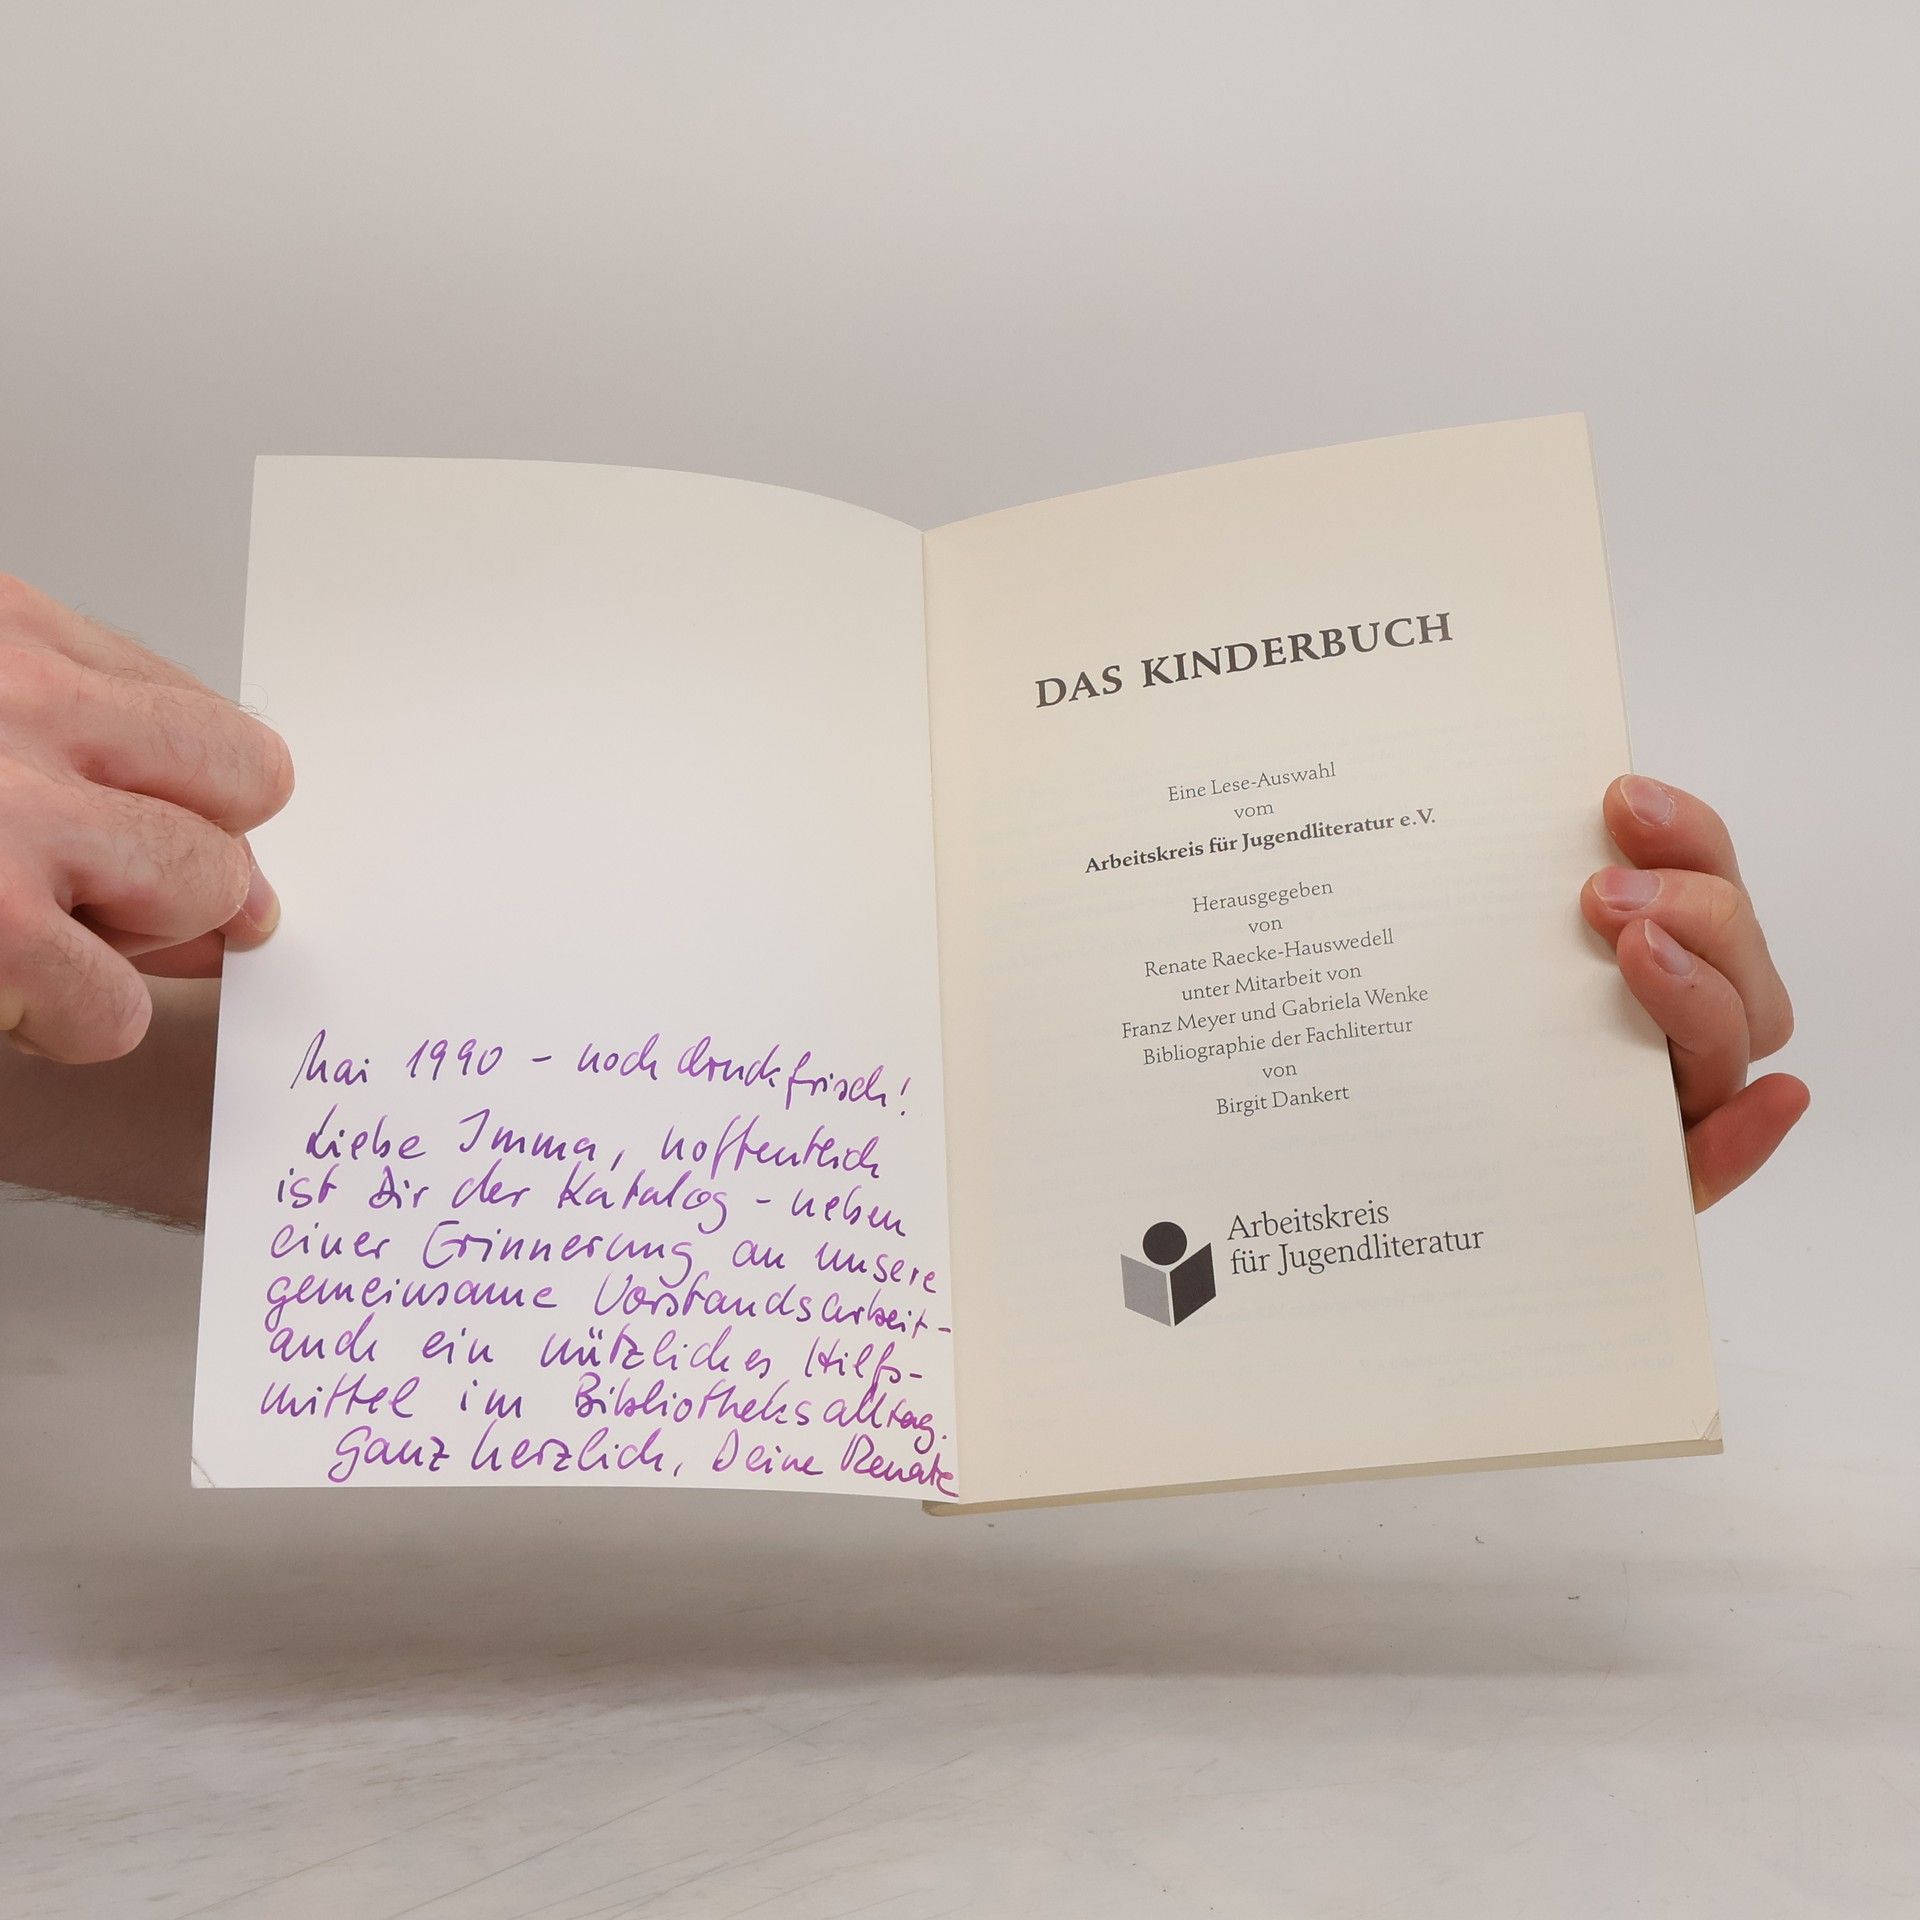 Mai 1990 - noch druckfrisch!
Liebe Imma, hoffentlich
ist Dir der Katalog - neben
einer Erinnerung an unsere
gemeinsame Vorstandsarbeit -
auch ein nützliches Hilfs-
mittel im Bibliotheksalltag.
Ganz herzlich, Deine Renate
DAS KINDERBUCH
Eine Lese-Auswahl
vom
Arbeitskreis für Jugendliteratur e.V.
Herausgegeben
von
Renate Raecke-Hauswedell
unter Mitarbeit von
Franz Meyer und Gabriela Wenke
Bibliographie der Fachlitertur
von
Birgit Dankert
Arbeitskreis
für Jugendliteratur